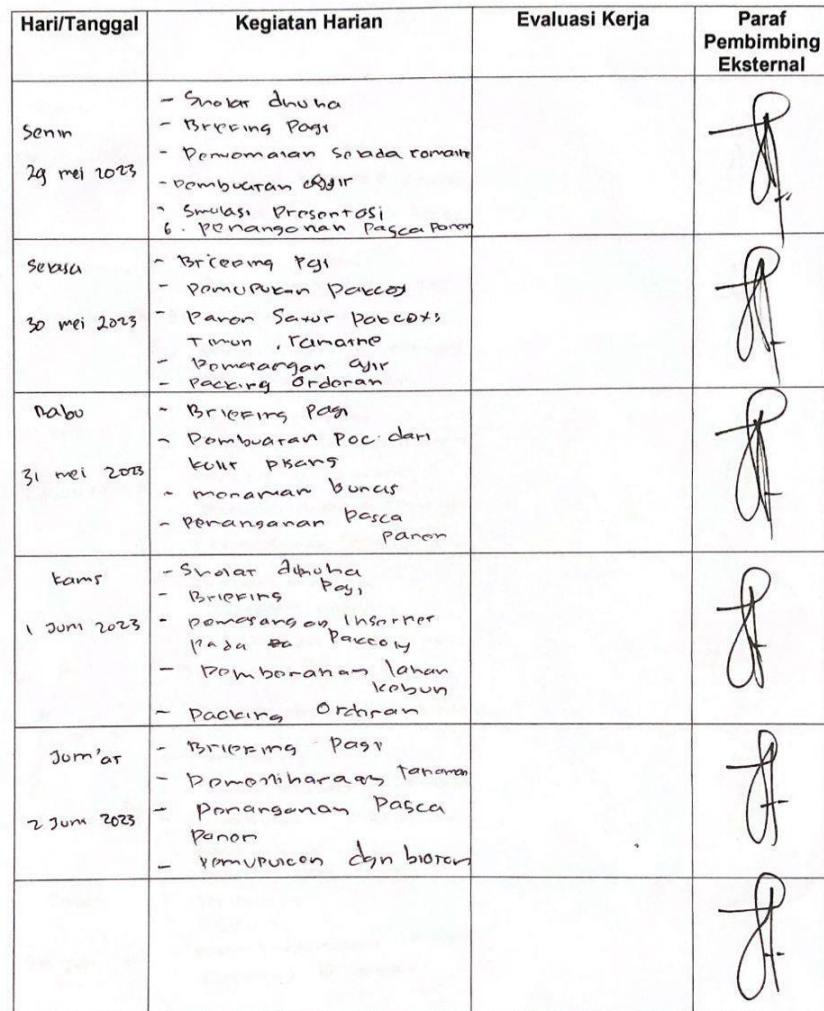 Hari/Tanggal Kegiatan Harian Evaluasi Kerja Paraf
Pembimbing
Eksternal
Senin
29 mei 2023
- Sholat dhuha
- Briefing Pagi
- Penyemaian Selada romaine
- Pembuatan ajir
- Simulasi Presentasi
6. Penanganan Pasca Panen
Selasa
30 mei 2023
- Briefing Pagi
- Pemupukan Pakcoy
- Panen Sayur
Timun, romaine
- Pemasangan ajir
- Packing Orderan
Rabu
31 mei 2023
- Briefing Pagi
- Pembuatan Poc dari
kulit pisang
- menanam buncis
- Penanganan Pasca
panen
Kamis
1 Juni 2023
- Sholat dhuha
- Briefing Pagi
- Pemasangan
Pada Pakcoy
- lahan
kebun
- Packing Orderan
Jum'at
2 Juni 2023
- Briefing Pagi
- Pemeliharaan tanaman
- Penanganan Pasca
Panen
- Pemupukan dgn